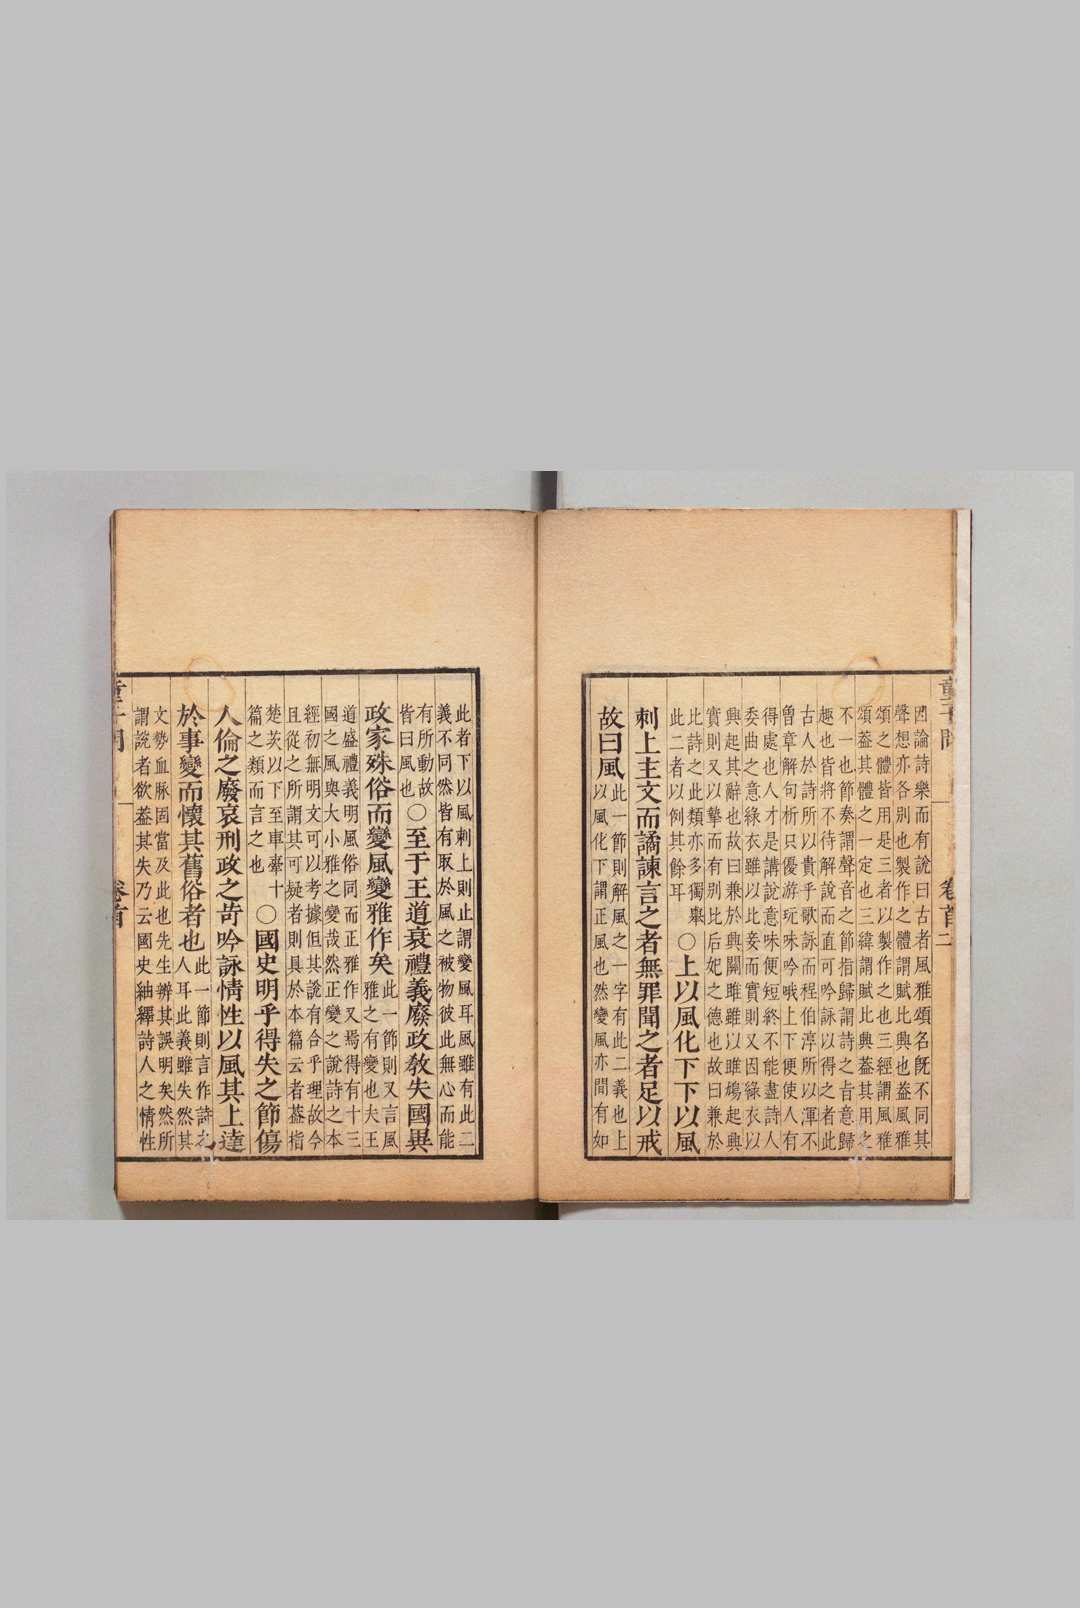 因論詩樂而有說曰古者風雅頌名旣不同其
聲想亦各別也製作之體謂賦比興也葢風雅
頌之體皆用是三者以製作之也三經謂風雅
頌葢其體之一定也三緯謂賦比興葢其用之
不一也節奏謂聲音之節指歸謂詩之旨意歸
趣也皆將不待解說而直可吟詠以得之者此
古人於詩所以貴乎歌詠而程伯淳所以渾不
曾章解句析只優游玩味吟哦上下便使人有
得處也人才是講說意味便短終不能盡詩人
委曲之意綠衣雖以比妾而實則又因綠衣以
興起其辭也故曰兼於興關雎雖以雎鳩起興
實則又以摯而有别比后妃之德也故曰兼於
比詩之此類亦多獨舉
此二者以例其餘耳
○上以風化下下以風
刺上主文而譎諫言之者無罪聞之者足以戒
故曰風
此一節則解風之一字有此二義也上
以風化下謂正風也然變風亦間有如
童子問
卷首二
此者下以風刺上則止謂變風耳風雖有此二
義不同然皆有取於風之被物彼此無心而能
有所動故
皆曰風也
○至于王道衰禮義廢政敎失國異
政家殊俗而變風變雅作矣
此一節則又言風
雅之有變也夫王
道盛禮義明風俗同而正雅作又焉得有十三
國之風與大小雅之變哉然正變之說詩之本
經初無明文可以考據但其說有合乎理故今
且從之所謂其可疑者則具於本篇云者葢指
楚茨以下至車舝十
篇之類而言之也
○國史明乎得失之節傷
人倫之廢哀刑政之苛吟詠情性以風其上達
於事變而懷其舊俗者也
此一節則言作詩之
人耳此義雖失然其
文勢血脉固當及此也先生辨其誤明矣然所
謂說者欲葢其失乃云國史紬繹詩人之情性
卷首